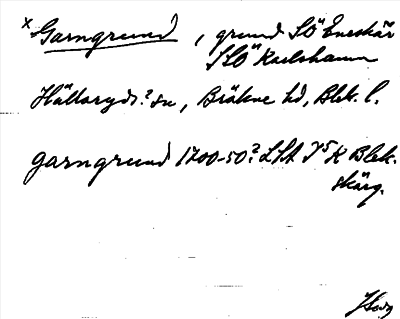 x Garngrund, grund SÖ Eneskär
SSO Karlshamn
Hällaryds? sn, Bräkne hd, Blek. l.
garngrund 1700-50? LSA K Blek.
skärg.